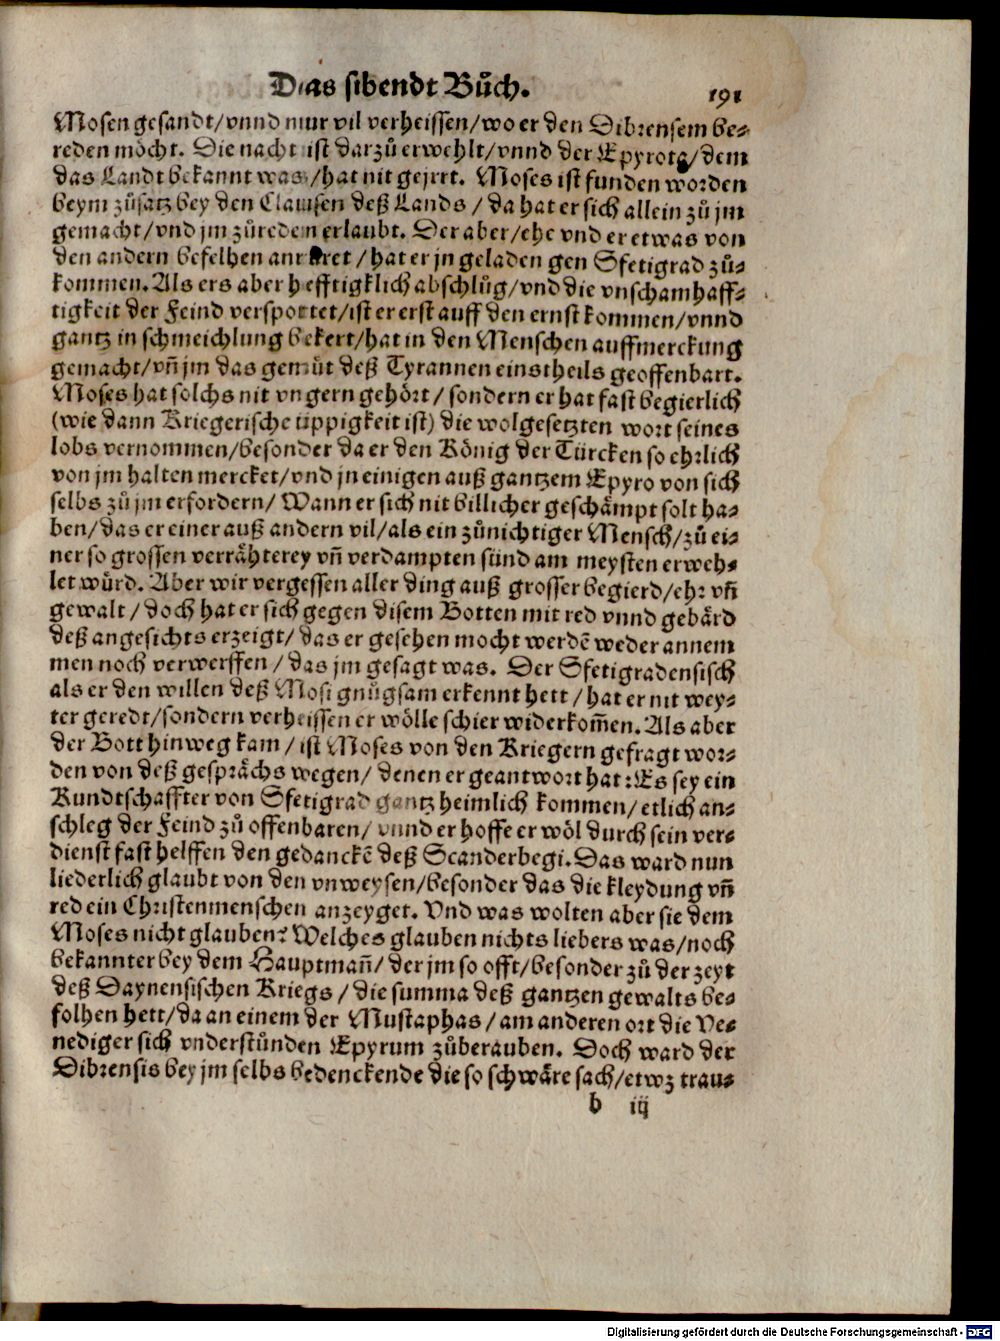 Das sibendt Bůch.
191
Mosen gesandt/vnnd nur vil verheissen/wo er den Dibrensem be-
reden möcht. Die nacht ist darzů erwehlt/vnnd der Epyrote/dem
das Landt bekannt was/hat nit geirrt. Moses ist funden worden
beym zůsatz bey den Clausen deß Lands / da hat er sich allein zů jm
gemacht/vnd jm zůreden erlaubt. Der aber/ehe vnd er etwas von
den andern befelhen anrüret /hat er jn geladen gen Sfetigrad zů-
kommen. Als ers aber hefftigklich abschlůg/vnd die vnschamhaff-
tigkeit der Feind verspottet/ist er erst auff den ernst kommen/vnnd
gantz in schmeichlung bekert/hat in den Menschen auffmerckung
gemacht/vñ jm das gemüt deß Tyrannen einstheils geoffenbart.
Moses hat solchs nit vngern gehört / sondern er hat fast begierlich
(wie dann Kriegerische üppigkeit ist) die wolgesetzten wort seines
lobs vernommen/besonder da er den König der Türcken so ehrlich
von jm halten mercket/vnd jn einigen auß gantzem Epyro von sich
selbs zů jm erfordern/ Wann er sich nit billicher geschämpt solt ha-
ben/das er einer auß andern vil/als ein zůnichtiger Mensch/zů ei-
ner so grossen verrähterey vñ verdampten sünd am meysten erweh-
let würd. Aber wir vergessen aller ding auß grosser begierd/ehr vñ
gewalt / doch hat er sich gegen disem Botten mit red vnnd gebärd
deß angesichts erzeigt/ das er gesehen mocht werdẽ weder annem
men noch verwerffen / das jm gesagt was. Der Sfetigradensisch
als er den willen deß Mosi gnůgsam erkennt hett / hat er nit wey-
ter geredt/sondern verheissen er wölle schier widerkom̃en. Als aber
der Bott hinweg kam / ist Moses von den Kriegern gefragt wor-
den von deß gesprächs wegen/ denen er geantwort hat: Es sey ein
Kundtschaffter von Sfetigrad gantz heimlich kommen/ etlich an-
schleg der Feind zů offenbaren/ vnnd er hoffe er wöl durch sein ver-
dienst fast helffen den gedanckẽ deß Scanderbegi. Das ward nun
liederlich glaubt von den vnweysen/besonder das die kleydung vñ
red ein Christenmenschen anzeyget. Vnd was wolten aber sie dem
Moses nicht glauben? Welches glauben nichts liebers was/noch
bekannter bey dem Hauptmañ/ der jm so offt/besonder zů der zeyt
deß Daynensischen Kriegs / die summa deß gantzen gewalts be-
folhen hett/da an einem der Mustaphas / am anderen ort die Ve-
nediger sich vnderstůnden Epyrum zůberauben. Doch ward der
Dibrensis bey jm selbs bedenckende die so schwäre sach/etwz trau-
b iij
Digitalisierung gefördert durch die Deutsche Forschungsgemeinschaft - DFG